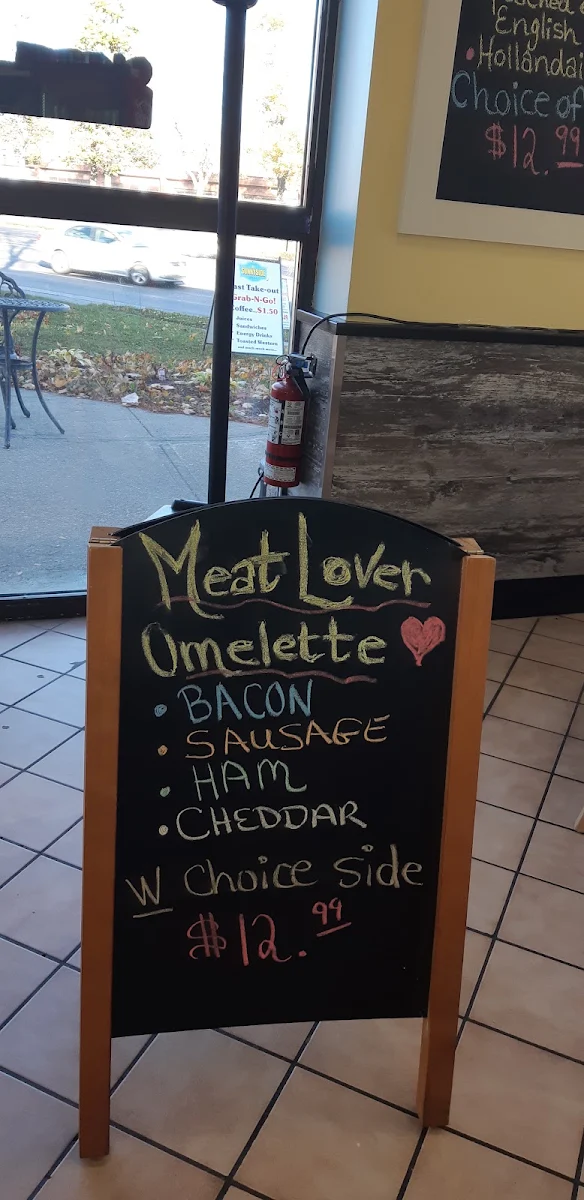 English
• Hollandai
Choice of
$12.99
ast Take-out
Grab-N-Go!
Coffee..$1.50
Juices
Sandwiches
Energy Drinks
Meat Lover
Omelette
• BACON
• SAUSAGE
• HAM
• CHEDDAR
W Choice Side
$12.99